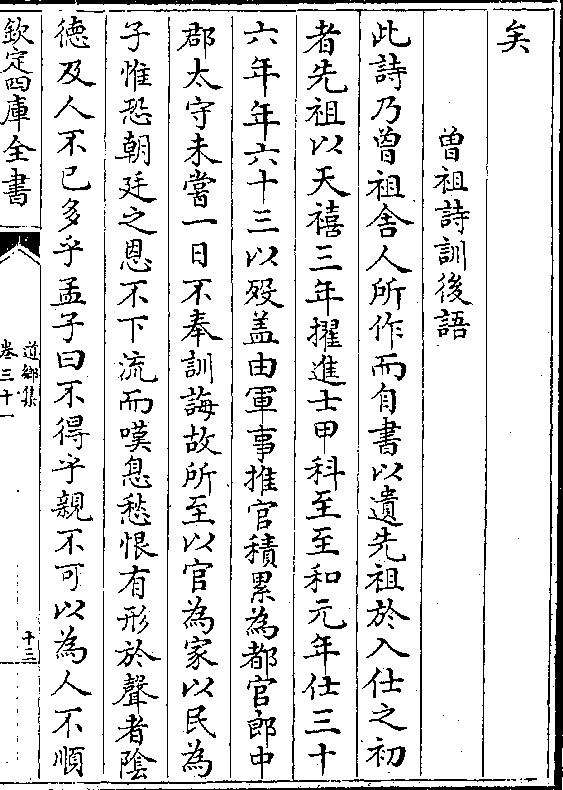 矣
曽祖詩訓後語
此詩乃曽祖舍人所作而自書以遺先祖於入仕之初
者先祖以天禧三年擢進士甲科至至和元年仕三十
六年年六十三以殁盖由軍事推官積累為都官郎中
郡太守未嘗一日不奉訓誨故所至以官為家以民為
子惟恐朝廷之恩不下流而嘆息愁恨有形於聲者隂
徳及人不已多乎孟子曰不得乎親不可以為人不順
欽定四庫全書
道鄉集
卷三十一
十三